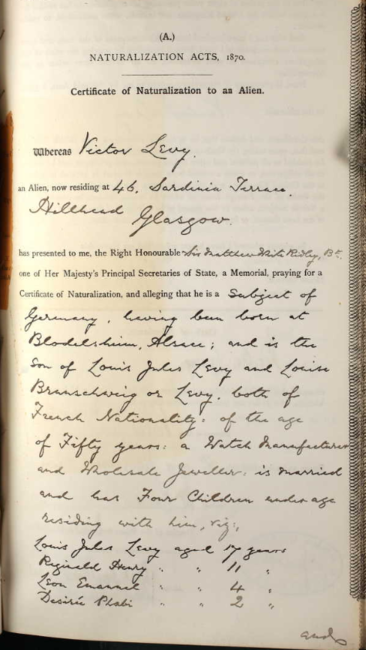 (A.)
NATURALIZATION ACTS, 1870.
Certificate of Naturalization to as Alien.
Whereas Victor Levy.
an Alien, now residing at 46, Sardinia Terrace,
Hillhead Glasgow.
has presented to me, the Right Honourable Sir Matthew White Ridley, Bt.
one of Her Majesty's Principal Secretaries of State, a Memorial, praying for a
Certificate of Naturalization, and alleging that he is a Subject of
Germany, having been born at
Blodelsheim, Alsace; and is the
Son of Louis Jules Levy and Louise
Brunschweig or Levy, both of
French Nationality, of the age
of Fifty years: a Watch Manufacturer
and Wholesale Jeweller, is married
and has Four Children under age
residing with him, viz:,
Louis Jules Levy aged 17 years
Reginald Henry " " 11 "
Leon Emanuel " " 4 "
Desirée Phobi " " 2 "
and